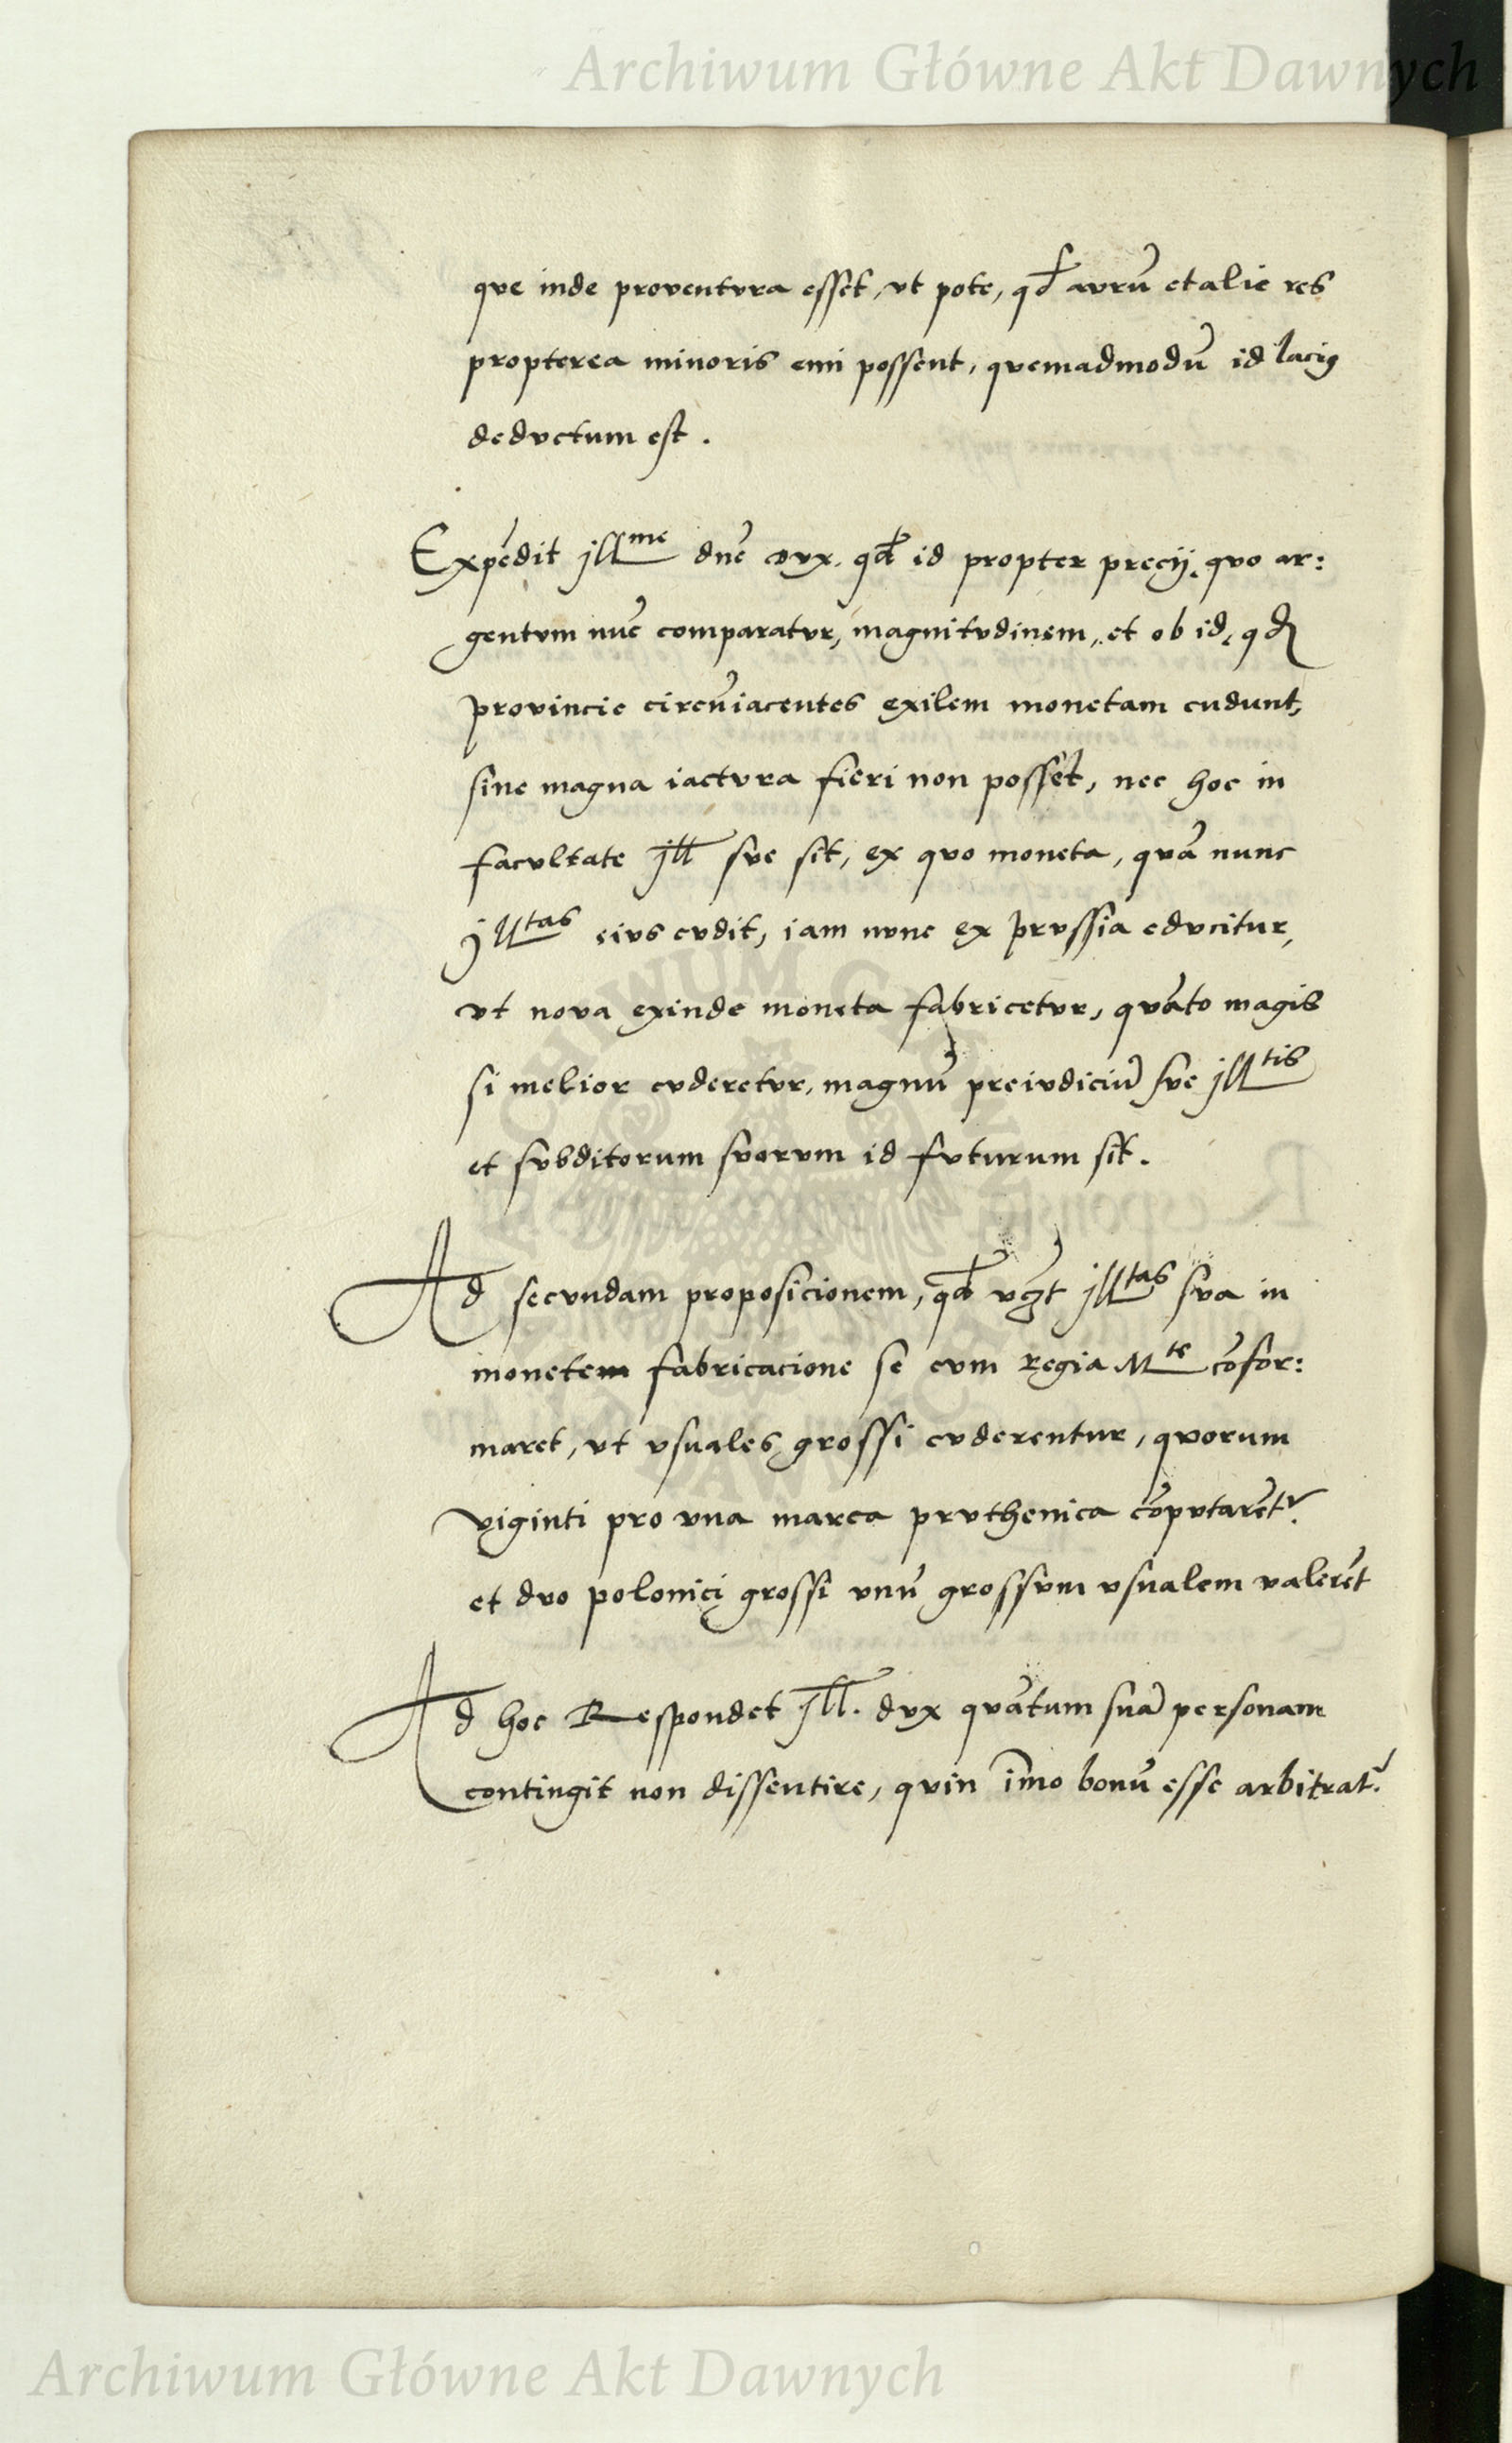 Archiwum Główne Akt Dawnych
que inde proventura esset, vt pote, qd̄ aurū et alie res
propterea minoris emi possent, quemadmodū id laciꝰ
deductum est.
Expēdit Jllme dnē dux. qd̄ id propter precij, quo ar:
gentum nūc comparatur, magnitudinem, et ob id, qd
provincie circūiacentes exilem monetam cudunt,
sine magna iactura fieri non posset, nec hoc in
facultate Jll sue sit, ex quo moneta, quā nunc
Jlltas eius cudit, iam nunc ex prussia educitur,
vt nova exinde moneta fabricetur, quāto magis
si melior cuderetur, magnū preiudiciū sue Jlltis
et subditorum suorum id futurum sit.
Ad secundam proposicionem, qd̄ Jlltas sua in
monetem fabricacione se cum regia Mte cōfor:
maret, vt vsuales grossi cuderentur, quorum
viginti pro vna marca pruthenica cōputarēt᷑
et duo polonici grossi vnū grossum vsualem valerēt
Ad hoc Respondet Jll. dux quātum suā personam
contingit non dissentire, quin īmo bonū esse arbitrat᷑
ARCHIWUM GŁÓWNE AKT DAWNYCH
Archiwum Główne Akt Dawnych